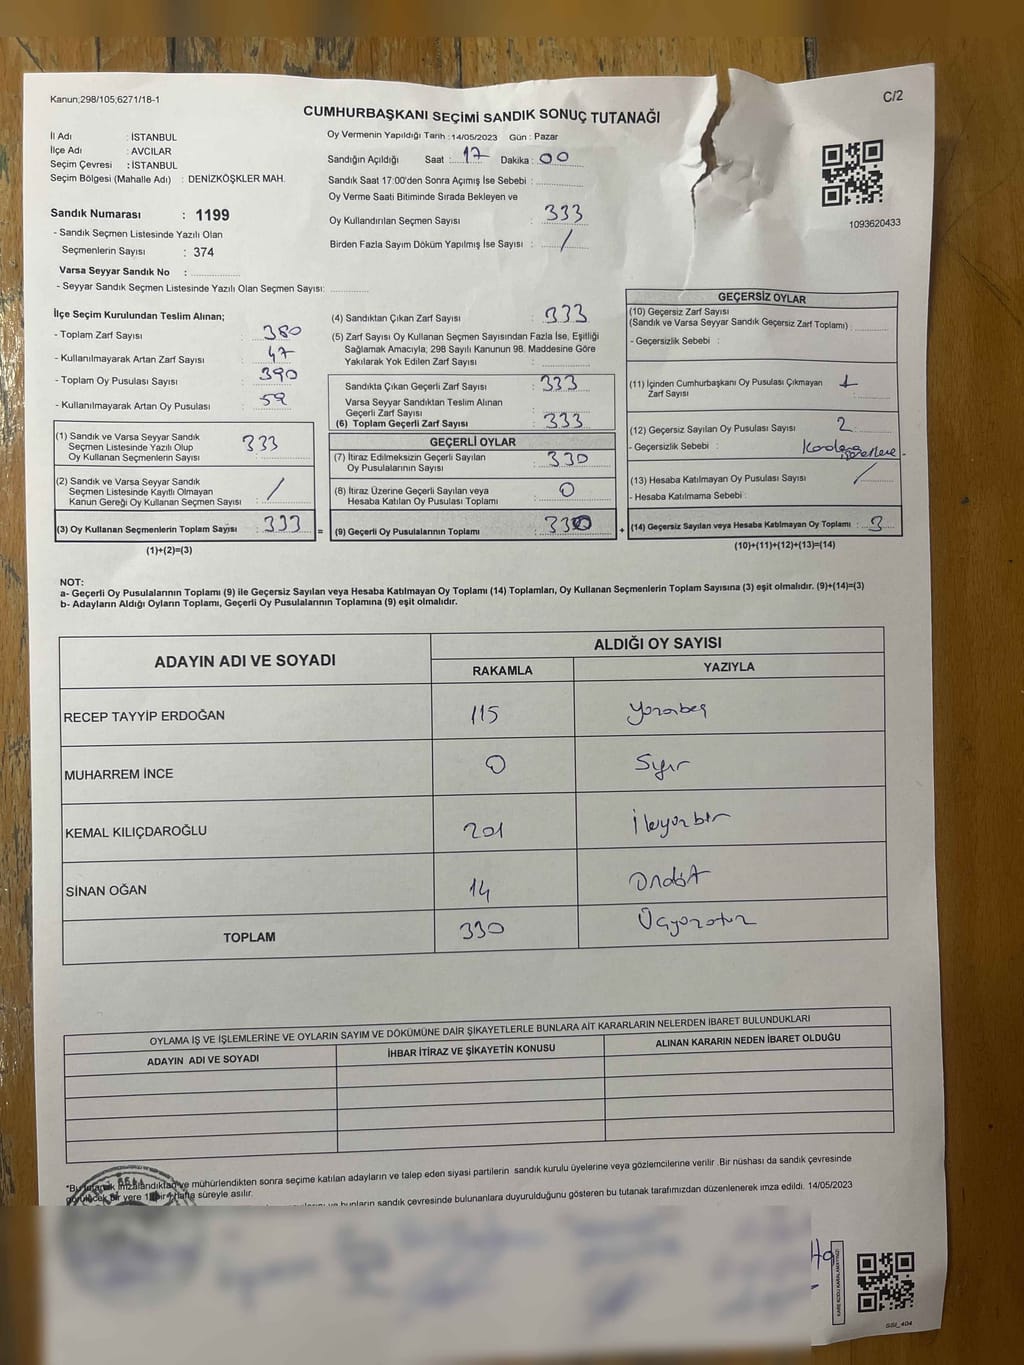 Kanun,298/105;6271/18-1
C/2
CUMHURBAŞKANI SEÇİMİ SANDIK SONUÇ TUTANAĞI
İl Adı : İSTANBUL
İlçe Adı : AVCILAR
Seçim Çevresi : İSTANBUL
Seçim Bölgesi (Mahalle Adı) : DENİZKÖŞKLER MAH.
Oy Vermenin Yapıldığı Tarih : 14/05/2023 Gün : Pazar
Sandığın Açıldığı Saat : 17 Dakika : 00
Sandık Saat 17:00'den Sonra Açımış İse Sebebi :
Oy Verme Saati Bitiminde Sırada Bekleyen ve
Oy Kullandırılan Seçmen Sayısı : 333
Birden Fazla Sayım Döküm Yapılmış İse Sayısı : /
1093620433
Sandık Numarası : 1199
- Sandık Seçmen Listesinde Yazılı Olan
Seçmenlerin Sayısı : 374
Varsa Seyyar Sandık No :
- Seyyar Sandık Seçmen Listesinde Yazılı Olan Seçmen Sayısı:
İlçe Seçim Kurulundan Teslim Alınan;
- Toplam Zarf Sayısı : 380
- Kullanılmayarak Artan Zarf Sayısı : 47
- Toplam Oy Pusulası Sayısı : 390
- Kullanılmayarak Artan Oy Pusulası : 59
(1) Sandık ve Varsa Seyyar Sandık
Seçmen Listesinde Yazılı Olup
Oy Kullanan Seçmenlerin Sayısı : 333
(2) Sandık ve Varsa Seyyar Sandık
Seçmen Listesinde Kayıtlı Olmayan
Kanun Gereği Oy Kullanan Seçmen Sayısı : /
(3) Oy Kullanan Seçmenlerin Toplam Sayısı : 333 =
(1)+(2)=(3)
(4) Sandıktan Çıkan Zarf Sayısı : 333
(5) Zarf Sayısı Oy Kullanan Seçmen Sayısından Fazla İse, Eşitliği
Sağlamak Amacıyla, 298 Sayılı Kanunun 98. Maddesine Göre
Yakılarak Yok Edilen Zarf Sayısı :
Sandıkta Çıkan Geçerli Zarf Sayısı : 333
Varsa Seyyar Sandıktan Teslim Alınan
Geçerli Zarf Sayısı :
(6) Toplam Geçerli Zarf Sayısı : 333
GEÇERLİ OYLAR
(7) İtiraz Edilmeksizin Geçerli Sayılan
Oy Pusulalarının Sayısı : 330
(8) İtiraz Üzerine Geçerli Sayılan veya
Hesaba Katılan Oy Pusulası Toplamı : 0
(9) Geçerli Oy Pusulalarının Toplamı : 330 +
GEÇERSİZ OYLAR
(10) Geçersiz Zarf Sayısı
(Sandık ve Varsa Seyyar Sandık Geçersiz Zarf Toplamı) :
- Geçersizlik Sebebi :
(11) İçinden Cumhurbaşkanı Oy Pusulası Çıkmayan
Zarf Sayısı : 1
(12) Geçersiz Sayılan Oy Pusulası Sayısı : 2
- Geçersizlik Sebebi :
(13) Hesaba Katılmayan Oy Pusulası Sayısı : /
- Hesaba Katılmama Sebebi :
(14) Geçersiz Sayılan veya Hesaba Katılmayan Oy Toplamı : 3
(10)+(11)+(12)+(13)=(14)
NOT:
a- Geçerli Oy Pusulalarının Toplamı (9) ile Geçersiz Sayılan veya Hesaba Katılmayan Oy Toplamı (14) Toplamları, Oy Kullanan Seçmenlerin Toplam Sayısına (3) eşit olmalıdır. (9)+(14)=(3)
b- Adayların Aldığı Oyların Toplamı, Geçerli Oy Pusulalarının Toplamına (9) eşit olmalıdır.
ADAYIN ADI VE SOYADI ALDIĞI OY SAYISI
RAKAMLA YAZIYLA
RECEP TAYYİP ERDOĞAN 115 Yüzonbeş
MUHARREM İNCE 0 Sıfır
KEMAL KILIÇDAROĞLU 201 İkiyüzbir
SİNAN OĞAN 14 Ondört
TOPLAM 330 Üçyüzotuz
OYLAMA İŞ VE İŞLEMLERİNE VE OYLARIN SAYIM VE DÖKÜMÜNE DAİR ŞİKAYETLERLE BUNLARA AİT KARARLARIN NELERDEN İBARET BULUNDUKLARI
ADAYIN ADI VE SOYADI İHBAR İTİRAZ VE ŞİKAYETİN KONUSU ALINAN KARARIN NEDEN İBARET OLDUĞU
*Bu tutanak imzalandıktan ve mühürlendikten sonra seçime katılan adayların ve talep eden siyasi partilerin sandık kurulu üyelerine veya gözlemcilerine verilir .Bir nüshası da sandık çevresinde
görülecek bir yere 1 bir hafta süreyle asılır.
bunların sandık çevresinde bulunanlara duyurulduğunu gösteren bu tutanak tarafımızdan düzenlenerek imza edildi. 14/05/2023
KARE KODU KARALAMAYINIZ!
SSI_404